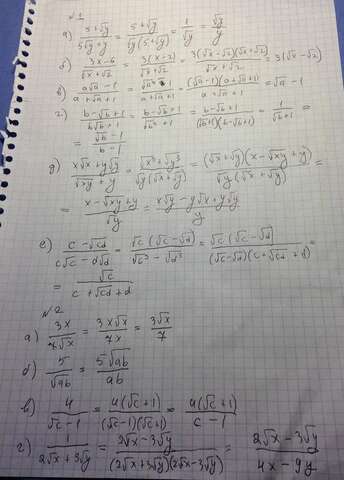 №1
а) (5+√y)/(5√y+y) = (5+√y)/(√y(5+√y)) = 1/√y = √y/y
б) (3x-6)/(√x+√2) = 3(x-2)/(√x+√2) = 3(√x-√2)(√x+√2)/(√x+√2) = 3(√x-√2)
в) (a√a-1)/(a+√a+1) = (√a³-1)/(a+√a+1) = (√a-1)(a+√a+1)/(a+√a+1) = √a-1
г) (b-√b+1)/(b√b+1) = (b-√b+1)/(√b³+1) = (b-√b+1)/((√b+1)(b-√b+1)) = 1/(√b+1) =
= (√b-1)/(b-1)
д) (x√x+y√y)/(√xy+y) = (√x³+√y³)/(√y(√x+√y)) = (√x+√y)(x-√xy+y)/(√y(√x+√y)) =
= (x-√xy+y)/√y = (x√y-y√x+y√y)/y
е) (c-√cd)/(c√c-d√d) = √c(√c-√d)/(√c³-√d³) = √c(√c-√d)/((√c-√d)(c+√cd+d)) =
= √c/(c+√cd+d)
№2
а) 3x/(7√x) = 3x√x/(7x) = 3√x/7
б) 5/√ab = 5√ab/ab
в) 4/(√c-1) = 4(√c+1)/((√c-1)(√c+1)) = 4(√c+1)/(c-1)
г) 1/(2√x+3√y) = (2√x-3√y)/((2√x+3√y)(2√x-3√y)) = (2√x-3√y)/(4x-9y)